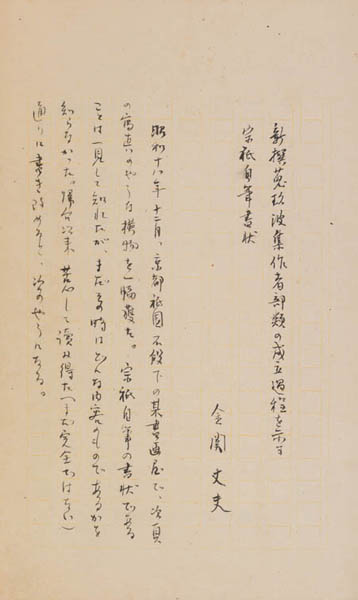 新撰菟玖波集作者部類の成立過程を示す
宗祇自筆書状
金関丈夫
昭和十八年十二月、京都祇園石段下の某書画屋で、次頁
の寫真のやうな横物を一幅獲た。宗祇自筆の書状である
ことは一見して知れたが、まだその時はどんな内容のものであるかを
知らなかつた。帰台以来苦心して讀み得た(まだ完全ではない)
通りに書き改めると、次のやうになる。